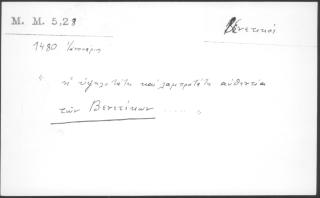 M. M. 5,28
Βενετικοί
1480 Ἰανουαρίῳ
" ἡ ὑψηλοτάτη καὶ λαμπροτάτη αὐθεντία
τῶν Βενετίκων ..... "